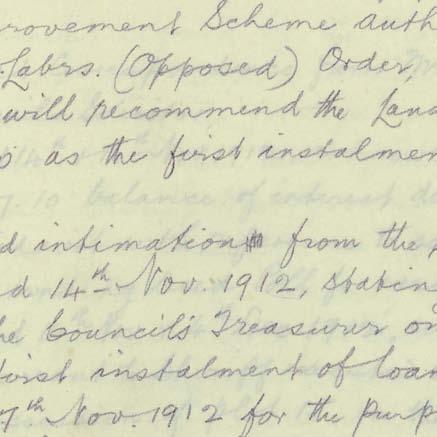 rovement Scheme auth
Labrs. (Opposed) Order,
will recommend the Lan
as the first instalmen
7. 10 balance of interest d
d intimation from the
d 14th Nov. 1912, statin
he Council's Treasurer on
first instalment of loan
7th Nov. 1912 for the purp